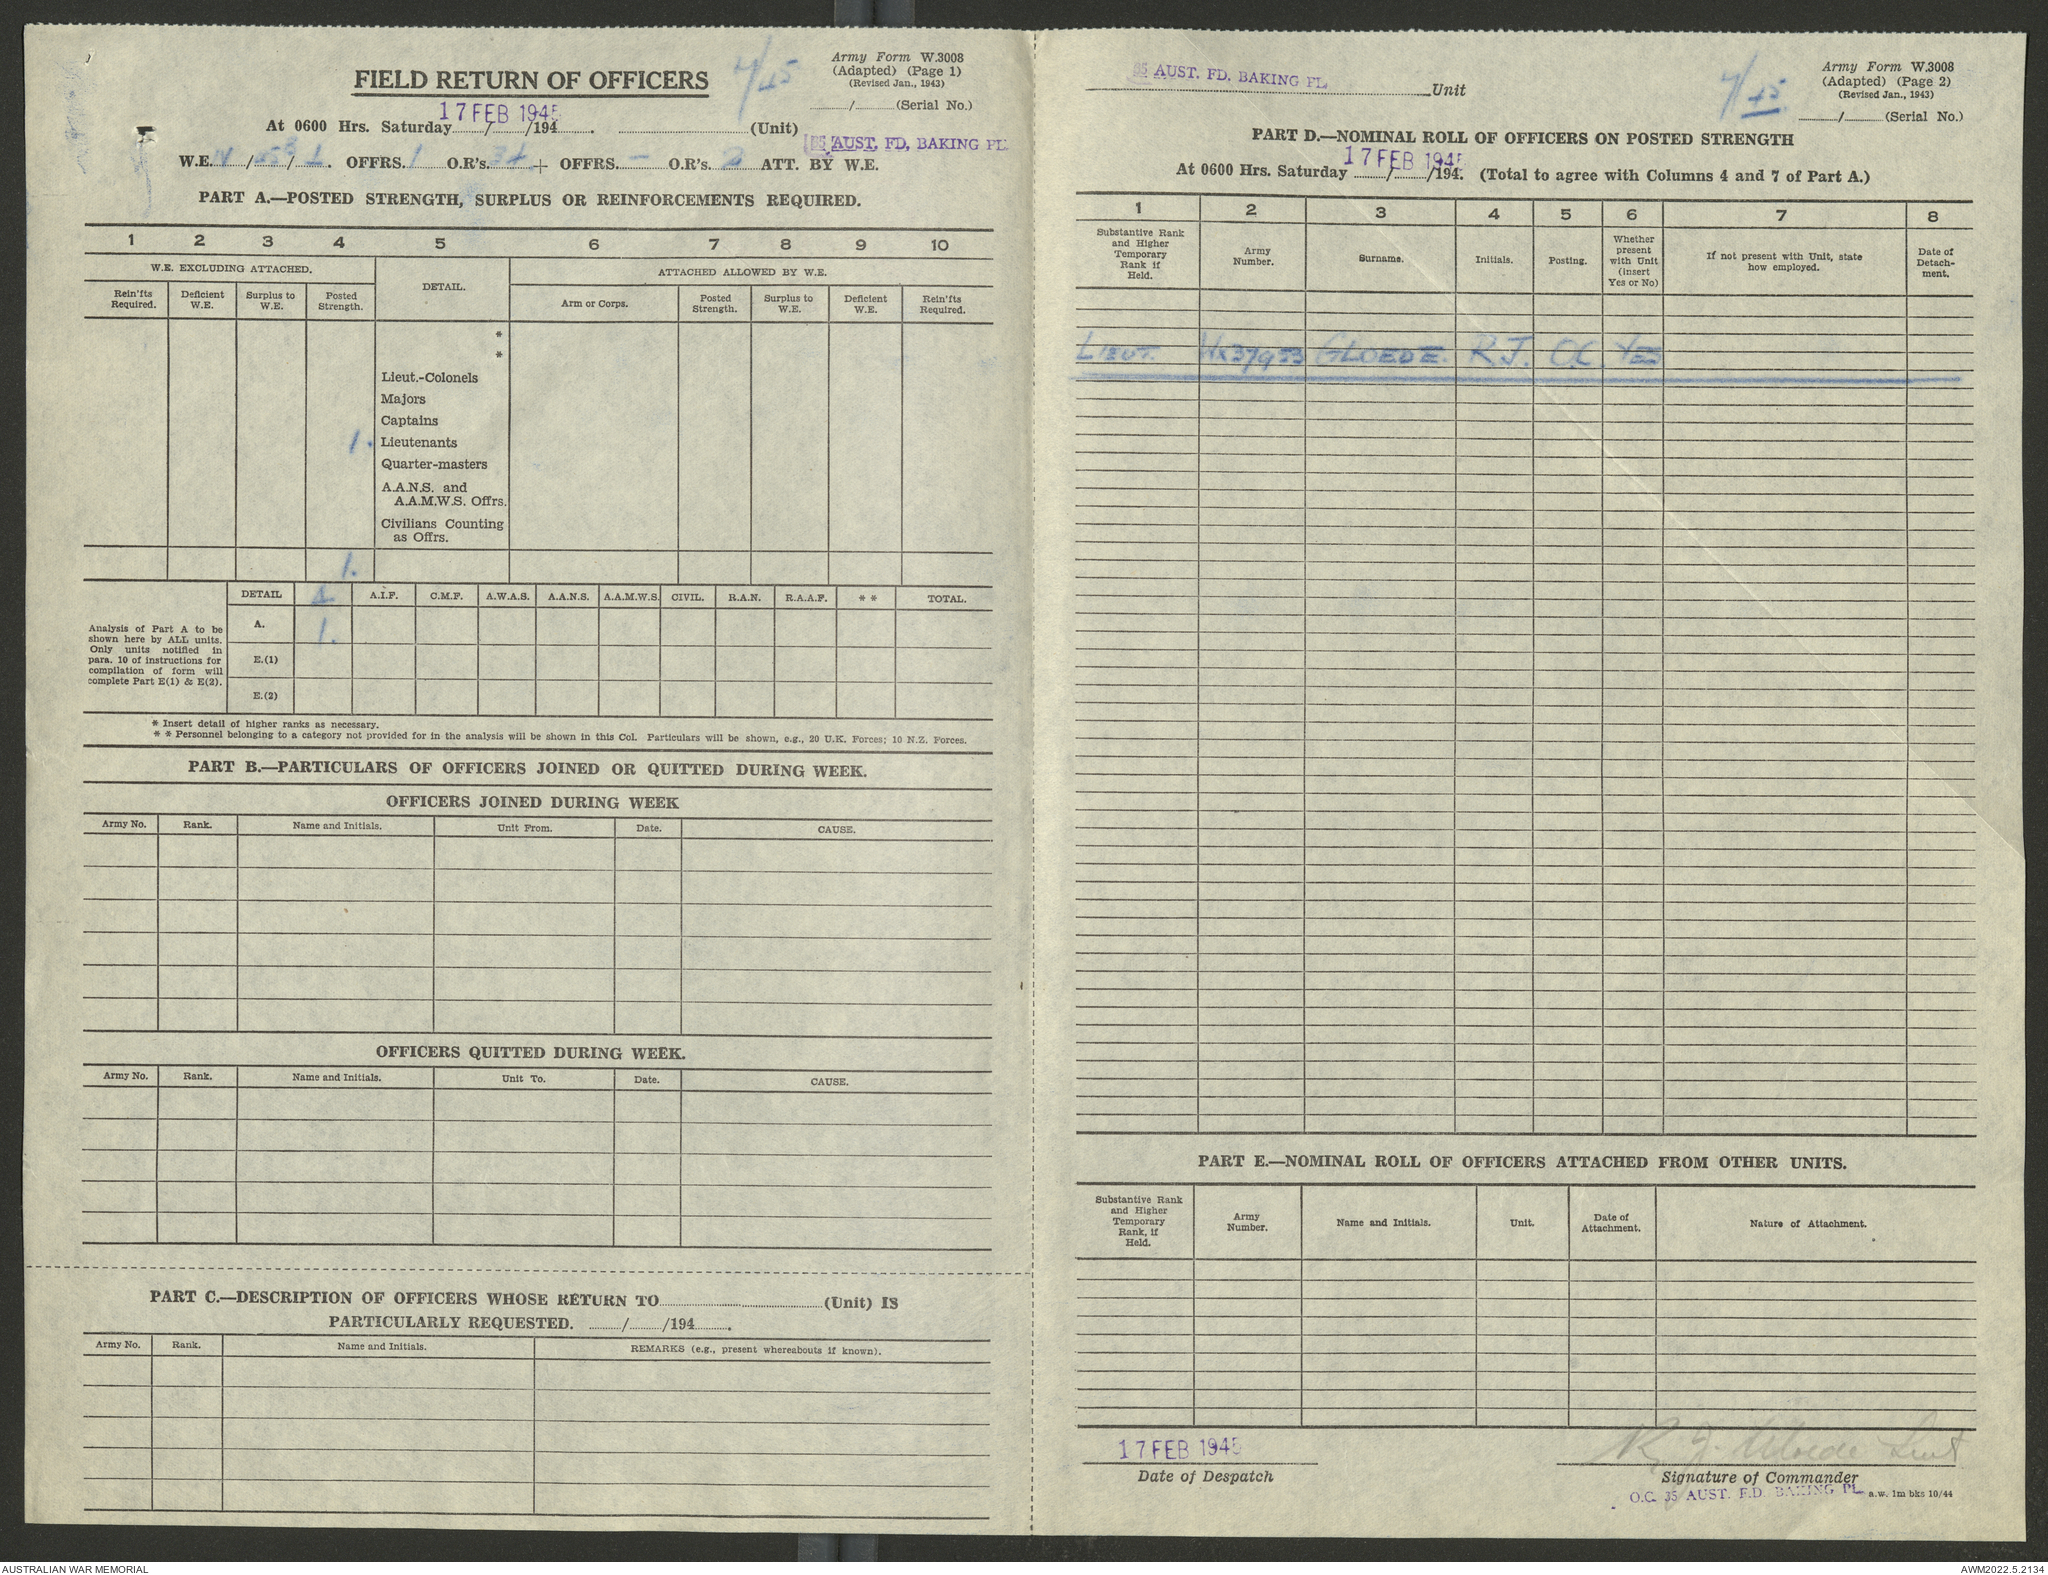 FIELD RETURN OF OFFICERS
7/45
Army Form W.3008
(Adapted) (Page 1)
(Revised Jan., 1943)
........./......... (Serial No.)
17 FEB 1945
At 0600 Hrs. Saturday......../......../194........ ........................ (Unit)
35 AUST. FD. BAKING PL.
W.E. IV / / . OFFRS. 1 O.R's. 34 + OFFRS. — O.R's. 2 ATT. BY W.E.
PART A.—POSTED STRENGTH, SURPLUS OR REINFORCEMENTS REQUIRED.
1 2 3 4 5 6 7 8 9 10
W.E. EXCLUDING ATTACHED. DETAIL. ATTACHED ALLOWED BY W.E.
Rein'fts Required. Deficient W.E. Surplus to W.E. Posted Strength. Arm or Corps. Posted Strength. Surplus to W.E. Deficient W.E. Rein'fts Required.
*
*
Lieut.-Colonels
Majors
Captains
1. Lieutenants
Quarter-masters
A.A.N.S. and
A.A.M.W.S. Offrs.
Civilians Counting
as Offrs.
1.
DETAIL A.I.F. C.M.F. A.W.A.S. A.A.N.S. A.A.M.W.S. CIVIL. R.A.N. R.A.A.F. * * TOTAL.
A. 1.
E.(1)
E.(2)
Analysis of Part A to be
shown here by ALL units.
Only units notified in
para. 10 of instructions for
compilation of form will
complete Part E(1) & E(2).
* Insert detail of higher ranks as necessary.
* * Personnel belonging to a category not provided for in the analysis will be shown in this Col. Particulars will be shown, e.g., 20 U.K. Forces; 10 N.Z. Forces.
PART B.—PARTICULARS OF OFFICERS JOINED OR QUITTED DURING WEEK.
OFFICERS JOINED DURING WEEK
Army No. Rank. Name and Initials. Unit From. Date. CAUSE.
OFFICERS QUITTED DURING WEEK.
Army No. Rank. Name and Initials. Unit To. Date. CAUSE.
PART C.—DESCRIPTION OF OFFICERS WHOSE RETURN TO........................(Unit) IS
PARTICULARLY REQUESTED. ......../......../194.........
Army No. Rank. Name and Initials. REMARKS (e.g., present whereabouts if known).
35 AUST. FD. BAKING PL. Unit
7/45
Army Form W.3008
(Adapted) (Page 2)
(Revised Jan., 1943)
........./......... (Serial No.)
PART D.—NOMINAL ROLL OF OFFICERS ON POSTED STRENGTH
17 FEB 1945
At 0600 Hrs. Saturday ......../......../194. (Total to agree with Columns 4 and 7 of Part A.)
1 2 3 4 5 6 7 8
Substantive Rank and Higher Temporary Rank if Held. Army Number. Surname. Initials. Posting. Whether present with Unit (insert Yes or No) If not present with Unit, state how employed. Date of Detach-ment.
LIEUT. WX37953 GLOEDE. R.J. O.C. YES
PART E.—NOMINAL ROLL OF OFFICERS ATTACHED FROM OTHER UNITS.
Substantive Rank and Higher Temporary Rank, if Held. Army Number. Name and Initials. Unit. Date of Attachment. Nature of Attachment.
17 FEB 1945
Date of Despatch
R. J. Gloede Lieut
Signature of Commander
O.C. 35 AUST. F.D. BAKING PL. a.w. 1m bks 10/44
AUSTRALIAN WAR MEMORIAL
AWM2022.5.2134